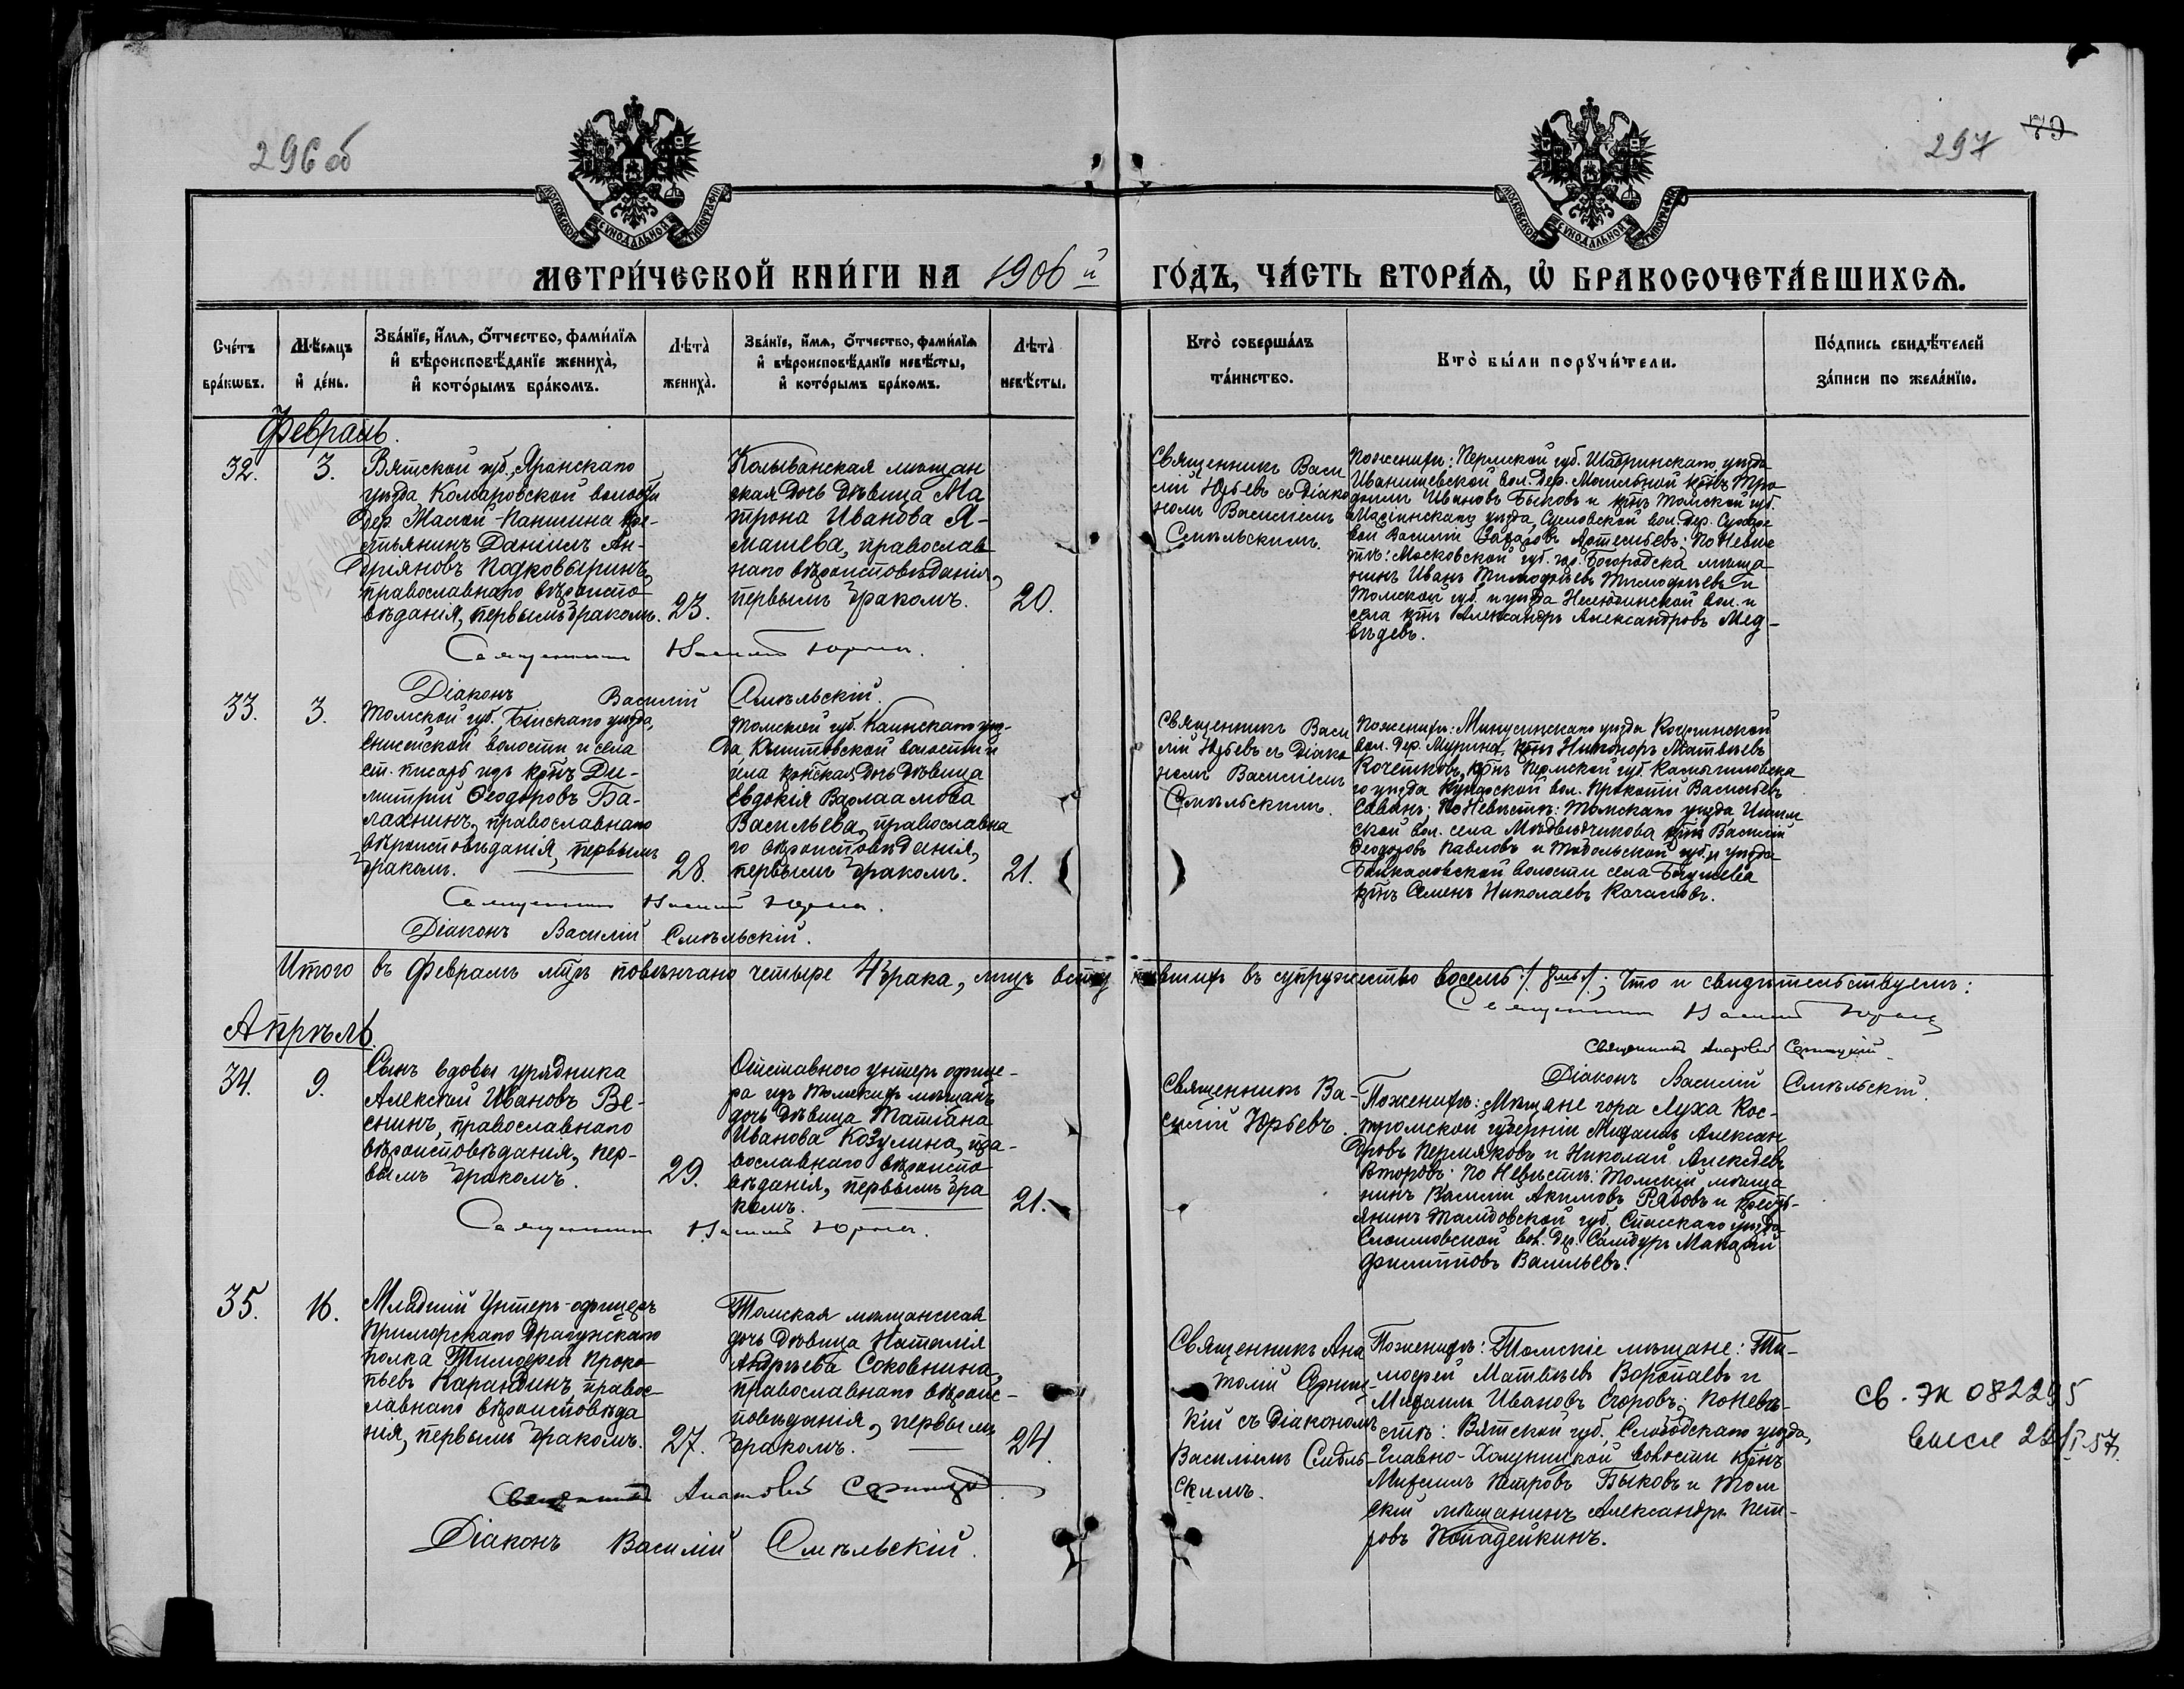 296 об
297
79
МОСКОВСКОЙ СѴНОДАЛЬНОЙ ТИПОГРАФІИ
МОСКОВСКОЙ СѴНОДАЛЬНОЙ ТИПОГРАФІИ
МЕТРИ́ЧЕСКОЙ КНИ́ГИ НА 1906й ГО́ДЪ, ЧА́СТЬ ВТОРА́Ѧ, Ѽ БРАКОСОЧЕТА́ВШИХСѦ.
Сче́тъ бра́кѡвъ.
Мѣ́сѧцъ и҆ де́нь.
Зва́нїе, и҆́мѧ, ѻ҆́тчество, фами́лїѧ и҆ вѣроисповѣ́данїе жениха̀, и҆ кото́рымъ бра́комъ.
Лѣта̀ жениха̀.
Зва́нїе, и҆́мѧ, ѻ҆́тчество, фами́лїѧ и҆ вѣроисповѣ́данїе невѣ́сты, и҆ кото́рымъ бра́комъ.
Лѣта̀ невѣ́сты.
Кто̀ соверша́лъ та́инство.
Кто̀ бы́ли порꙋчи́тели.
По́дпись свидѣ́телей за́писи по жела́нїю.
Февраль.
32.
3.
Вятской губ., Яранскаго
уѣзда Комаровской волости
дер. Малой-Паншина кре-
стьянинъ Даніилъ Ан-
дріяновъ Подковыринъ,
православнаго вѣроиспо-
вѣданія, первымъ бракомъ.
23.
Колыванская мѣщан
ская дочь дѣвица Ма
трона Иванова Я-
машева, православ
наго вѣроисповѣданія,
первымъ бракомъ.
20.
Священникъ Васи
лій Юрьевъ съ Діако
номъ Василіемъ
Смѣльскимъ.
По женихѣ: Пермской губ. Шадринскаго уѣзда
Иванищевской вол. дер. Могильной кр̃нъ Тро
фимъ Ивановъ Быковъ и кр̃нъ Томской губ.
Маріинскаго уѣзда, Сусловской вол. дер.
вой Василій Захаровъ Артемьевъ; по невѣс
тѣ: Московской губ. гор. Богородска мѣща
нинъ Иванъ Тимофѣевъ Тимофѣевъ и
Томской губ. и уѣзда Нелюбинской вол. и
села кр̃нъ Александръ Александровъ Мед-
вѣдевъ.
Священникъ Василій Юрьевъ.
Діаконъ Василій Смѣльскій.
33.
3.
Томской губ. Бійскаго уѣзда,
Енисейской волости и села
ст. писарь изъ кр̃нъ Ди-
митрій Ѳеодоровъ Ба-
лахнинъ, православнаго
вѣроисповѣданія, первымъ
бракомъ.
28.
Томской губ. Каинскаго уѣз-
да Кыштовской волости и
села кр̃нская дочь дѣвица
Евдокія Варлаамова
Васильева, православна
го вѣроисповѣданія,
первымъ бракомъ.
21.
Священникъ Васи
лій Юрьевъ съ Діако
номъ Василіемъ
Смѣльскимъ.
По женихѣ: Минусинскаго уѣзда
вол. дер. Мурина кр̃нъ Никифоръ Матвѣевъ
Кочетковъ, кр̃нъ Пермской губ. Камышловска
го уѣзда вол. Прокопій Васильевъ
по невѣстѣ: Томскаго уѣзда, Ишим
ской вол. села Медвѣдчикова кр̃нъ Василій
Ѳеодоровъ Павловъ и Тобольской губ. и уѣзда
Байкаловской волости села
кр̃нъ Семенъ Николаевъ Качаловъ.
Священникъ Василій Юрьевъ.
Діаконъ Василій Смѣльскій.
Итого въ Февралѣ мц̃ѣ повѣнчано четыре 4 брака, лицъ всту пившихъ въ супружество восемь /. 8мь ./; что и свидѣтельствуемъ:
Священникъ Василій Юрьевъ
Священникъ Анатолій
Діаконъ Василій Смѣльскій.
Апрѣль
34.
9.
Сынъ вдовы урядника
Алексѣй Ивановъ Ве-
снинъ, православнаго
вѣроисповѣданія, пер-
вымъ бракомъ.
29.
Отставного унтеръ офице-
ра изъ Томскихъ мѣщанъ
дочь дѣвица Татіана
Иванова Козулина, пра-
вославнаго вѣроиспо-
вѣданія, первымъ бра
комъ.
21.
Священникъ Ва-
силій Юрьевъ.
По женихѣ: Мѣщане гор Луха Кос-
тромской губерніи Михаилъ Алексан
дровъ Пермяковъ и Николай Алексѣевъ
Второвъ; по невѣстѣ: Томскій мѣща
нинъ Василій Акимовъ Рябовъ и кресть-
янинъ Тамбовской губ. Спасскаго уѣзда
вол. дер. Макарій
Филипповъ Васильевъ.
Священникъ Василій Юрьевъ.
35.
16.
Младшій Унтеръ-офицеръ
Приморскаго Драгунскаго
полка Тимофей Проко
пьевъ Карандинъ, правос-
лавнаго вѣроисповѣда
нія, первымъ бракомъ.
27.
Томская мѣщанская
дочь дѣвица Наталія
Андреева Соковнина,
православнаго вѣроис-
повѣданія, первымъ
бракомъ.
24.
Священникъ Ана
толій
кій съ Діакономъ
Василіемъ Смѣль-
скимъ.
По женихѣ: Томскіе мѣщане: Ти-
мофей Матвѣевъ Воропаевъ и
Михаилъ Ивановъ по невѣ-
стѣ: Вятской губ. Слободскаго уѣзда,
Главно-Холуницкой волости кр̃нъ
Михаилъ Петровъ Быковъ и Том
скій мѣщанинъ Александръ Пет-
ровъ Копадейкинъ.
Священникъ Анатолій
Діаконъ Василій Смѣльскій.
св. ЭК 082295
22/I-57.